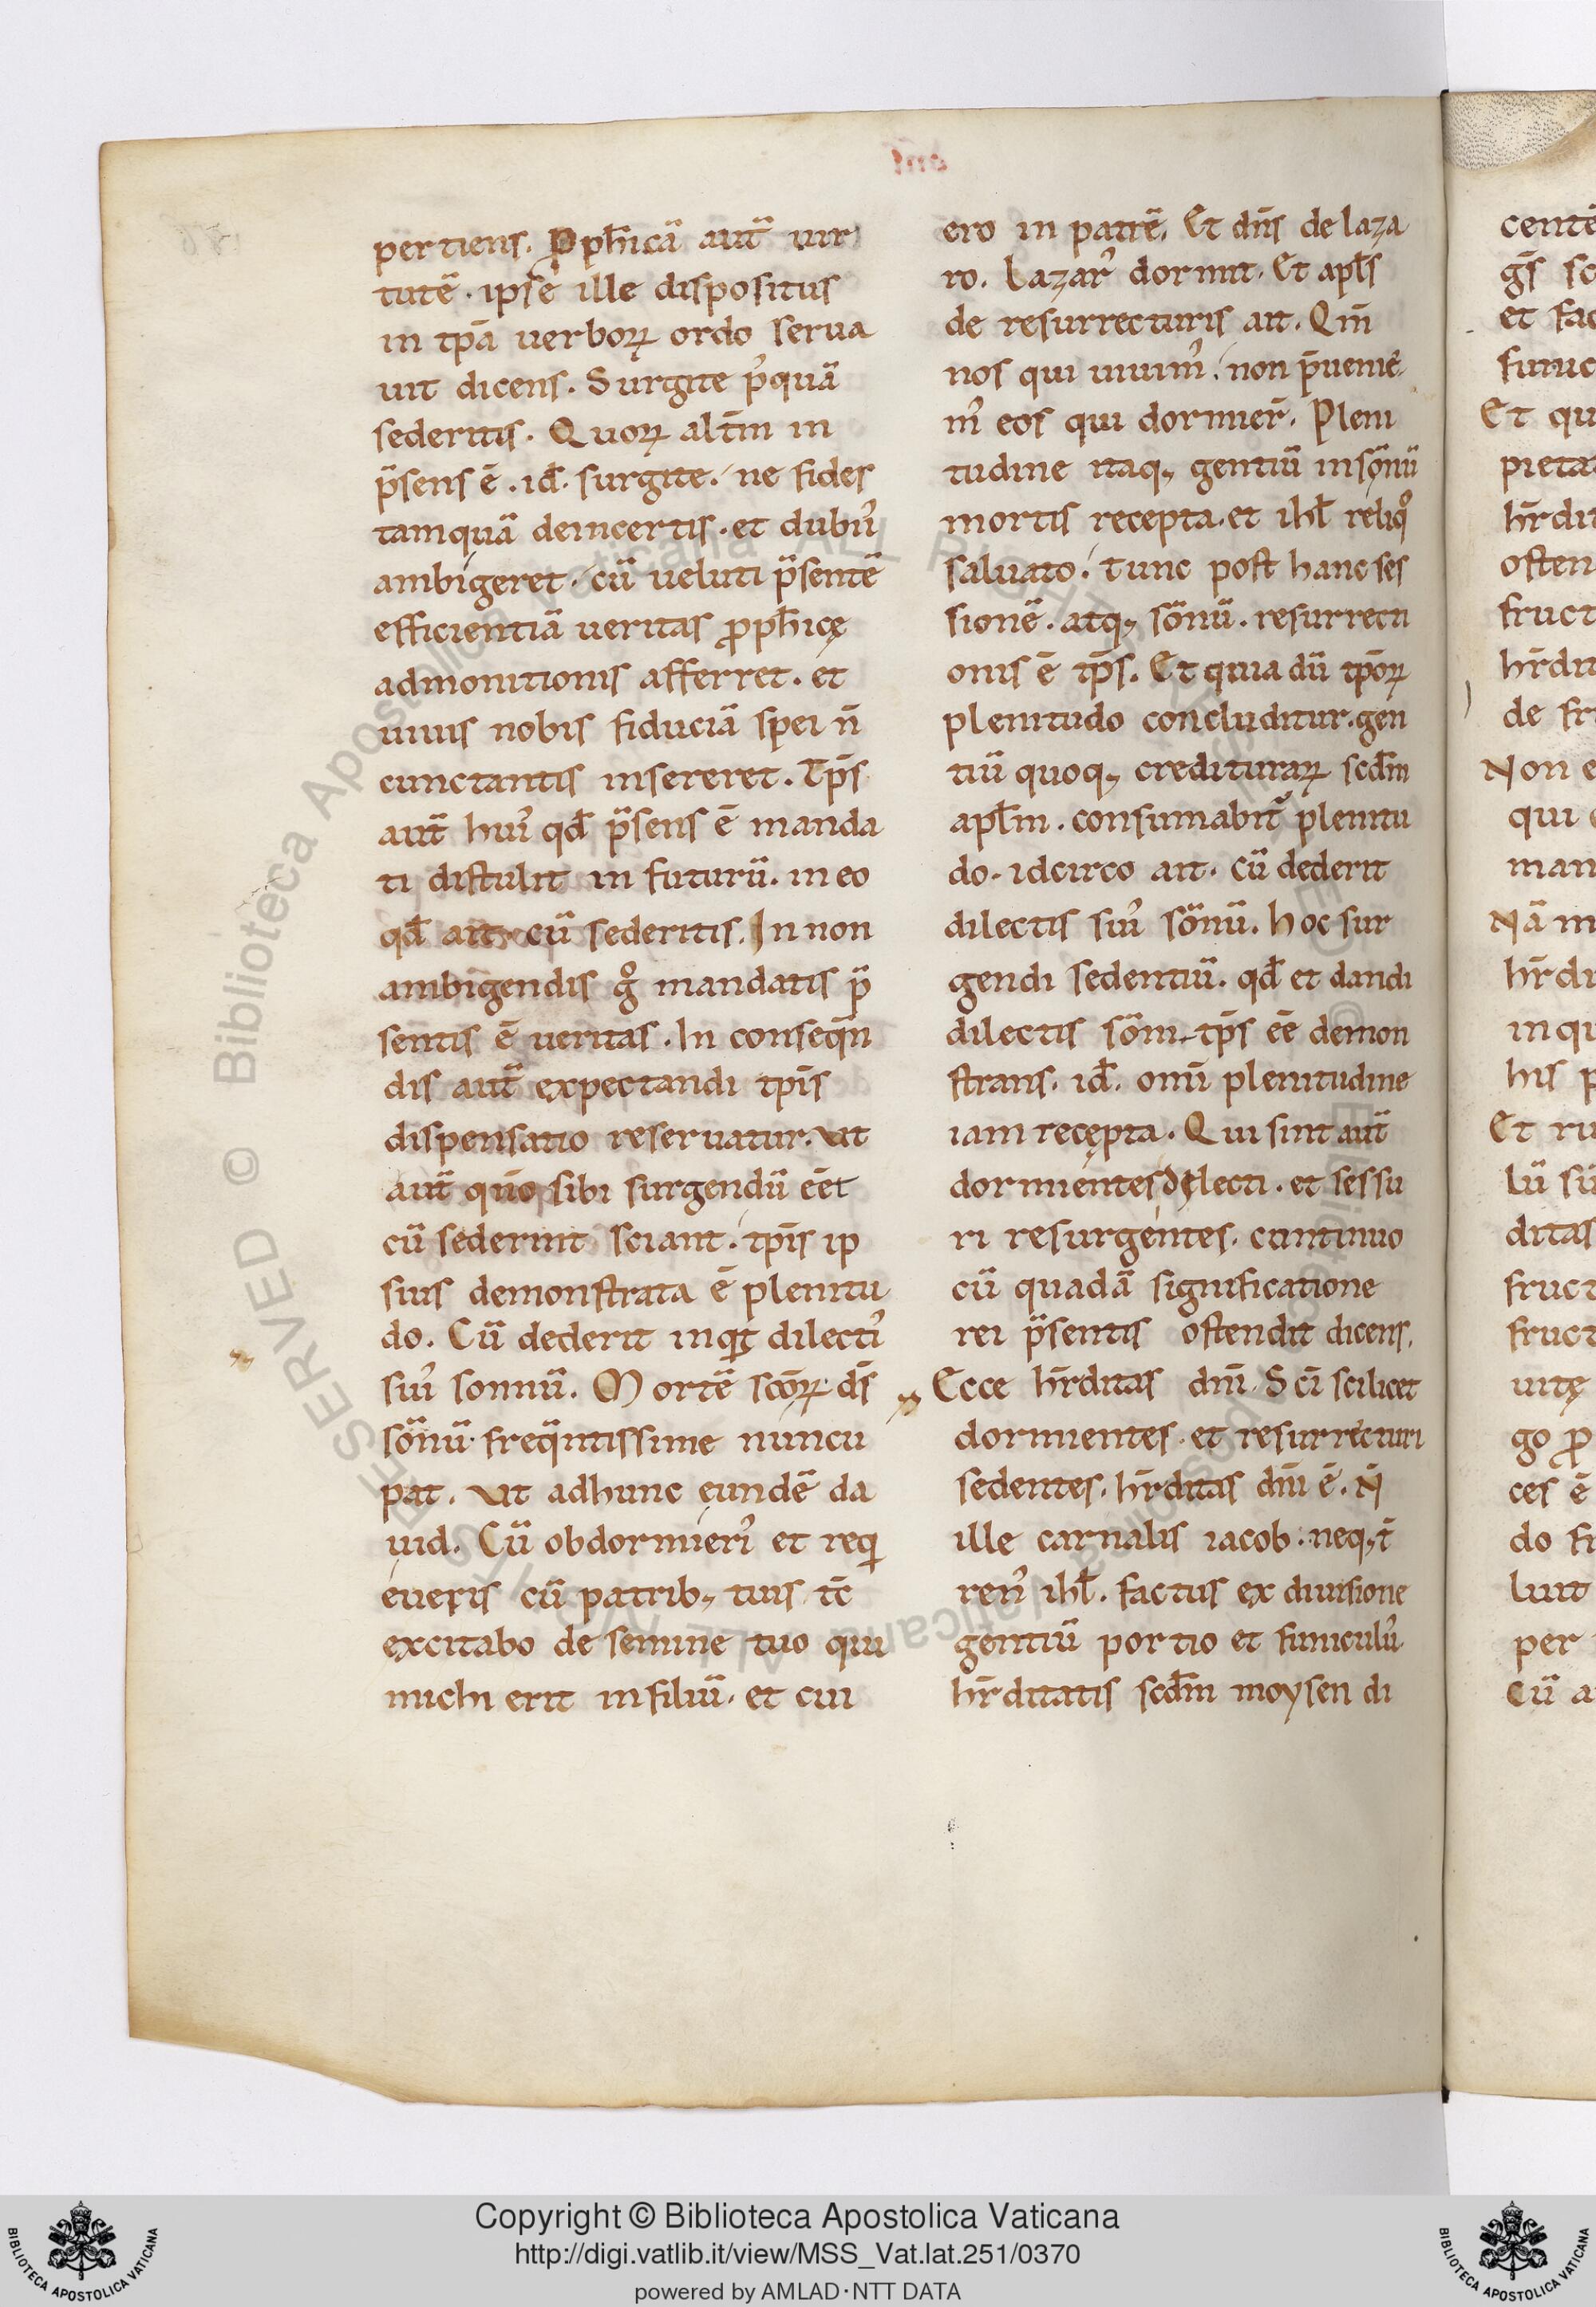 pertiens. P̲ph̅icā aut̄ uir
tutē. ipse ille dispositus
in tpa̅ uerboꝝ ordo serua
uit dicens. Surgite p̓quā
sederitis. Quoꝝ alt̄m in
p̄sens ē. id̄. surgite. ne fides
tamquā deincertis. et dubiis̓
ambigeret. cū ueluti p̄sentē
efficientiā ueritas ꝓph̅icę
admonitionis afferret. et
uiuis nobis fiduciā spei n̄
cunctantis insereret. Tp̄s
aut̄ hui᾽ qd̄ p̄sens ē manda
ti distulit in futurū. in eo
qd̄ ait cū sederitis. In non
ambigendis g̊ mandatis p̄
sentis ē ueritas. In conseqn̄
dis aut̄ expectandi tp̄is
dispensatio reseruatur. Vt
aut̄ qn̄o sibi surgendū eēt
cū sederint sciant. tp̄is ip
sius demonstrata ē plenitu
do. Cū dederit inqt dilecti᾽
sui᾽ somnū. Mortē sc̄oꝝ ds̄
so̅nū freqn̄tissime nuncu
pat. Vt adhunc eundē da
uid. Cū obdormieri᾽ et reqi
eueris cū patrib; tuis tc̄
excitabo de semine tuo qui
michi erit infiliū. et cui
ero in patrē. Et dn̄s de laza
ro. Lazar᾽ dormit. Et apl̄s
de resurrecturis ait. Qm̄
nos qui uiuim᾽. non p̄uenie
m᾽ eos qui dormier̄. Pleni
tudine itaq; gentiū insōnū
mortis recepta. et ihl̄ reliqo
saluato. tunc post hanc ses
sionē. atq; sōnū. resurrecti
onis ē tp̄s. Et quia dū tp̄oꝝ
plenitudo concluditur. gen
tiū quoq; credituraꝝ scd̄m
apl̄m. consumabit᾽ plenitu
do. idcirco ait. cū dederit
dilectis sui᾽ sōnū. hoc sur
gendi sedentiū. qd̄ et dandi
dilectis sōni tp̄s eē demon
strans. id̄. om̄i plenitudine
iam recępta. Qui sint aut̄
dormientes dilecti. et sessu
ri resurgentes. continuo
cū quadā significatione
rei p̄sentis ostendit dicens.
Ecce hr̄ditas dn̄i. Sc̄i scilicet
dormientes. et resurrecturi
sedentes. hr̄ditas dn̄i ē. N̄
ille carnalis iacob. neq; t̄
ren᾽ ihl̄. factus ex diuisione
gentiū portio et funiculu᾽
hr̄ditatis scd̄m moysen di
Copyright © Biblioteca Apostolica Vaticana
http://digi.vatlib.it/view/MSS_Vat.lat.251/0370
powered by AMLAD·NTT DATA